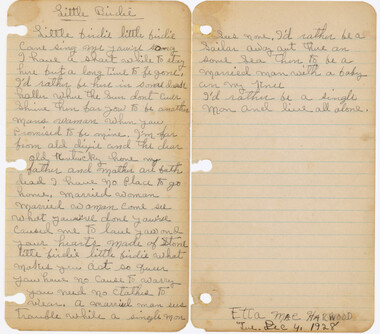 Little Birdie
Little birdie little birdie
Come sing me you're song
I have a short while to stay
here but a long time to be gone.
I'd rather be here in some dark
holler where the sun don't ever
shine then for you to be another
mans woman when you
promised to be mine. I'm far
from old dixie and the dear
old Kentucky home my
father and mother are both
dead I have no place to go
home, married woman
married women come see
what you've done you've
caused me to love you and
your hearts made of stone
little birdie little birdie what
makes you act so queer
you have no cause to worry
you need no clothes to
wear. A married man sees
trouble while a single man
sees none, I'd rather be a
sailor away out there on
some sea then to be a
married man with a baby
on my knee
I'd rather be a single
man and live all alone.
Etta Mae Harwood
Tue. Dec 4, 1928